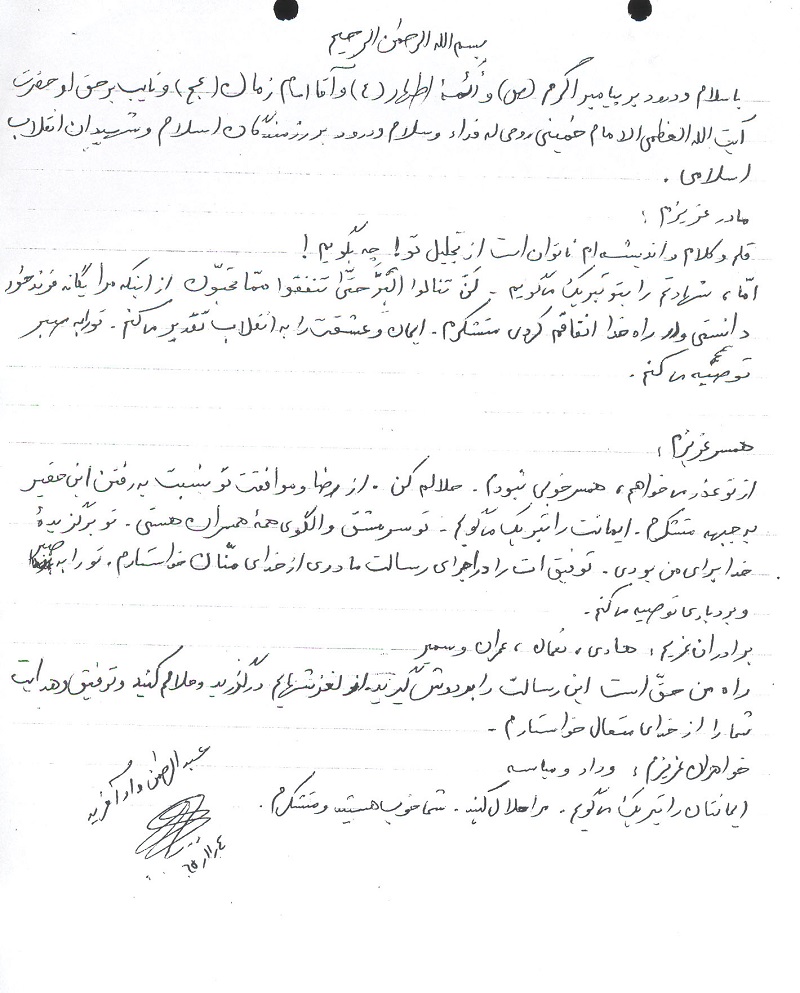 بسم الله الرحمن الرحیم
با سلام و درود بر پیامبر اکرم (ص) و ائمهٔ اطهار (ع) و آقا امام زمان (عج) و نایب بر حق او حضرت
آیت الله العظمی الامام خمینی روحی له فداء و سلام و درود بر رزمندگان اسلام و شهیدان انقلاب
اسلامی .
مادر عزیزم :
قلم و کلام و اندیشه ام ناتوان است از تجلیل تو! چه بگویم !
امّا، شهادتم را بتو تبریک میگویم - لَنْ تنالوا البِرَّ حتَّی تنفقوا ممّا تحبّون از اینکه مرا یگانه فرزند خود
دانستی و در راه خدا انفاقم کردی متشکرم . ایمان و عشقت را به انقلاب تقدیر می کنم . تو را به صبر
توصیه می کنم .
همسر عزیزم :
از تو عذر می خواهم، همسر خوبی نبودم . حلالم کن . از رضا و موافقت تو نسبت به رفتن این حقیر
به جبهه متشکرم . ایمانت را تبریک میگویم . تو سرمشق و الگوی همهٔ همسران هستی . تو برگزیدهٔ
خدا برای من بودی . توفیق ات را در اجرای رسالت مادری از خدای منّان خواستارم . تو را به صبر
و بردباری توصیه می کنم .
برادران عزیزم : هادی، نعمان، عمران و سمیر
راه من حقّ است این رسالت را بر دوش گیرید. از لغزشهایم درگذرید و حلالم کنید و توفیق و هدایت
شما را از خدای متعال خواستارم .
خواهران عزیزم : وداد و میاسه
ایمانتان را تبریک میگویم . مرا حلال کنید . شما خوب هستید و متشکرم .
عبدالرحمن دادآفرید
۶۵/۱۱/۴